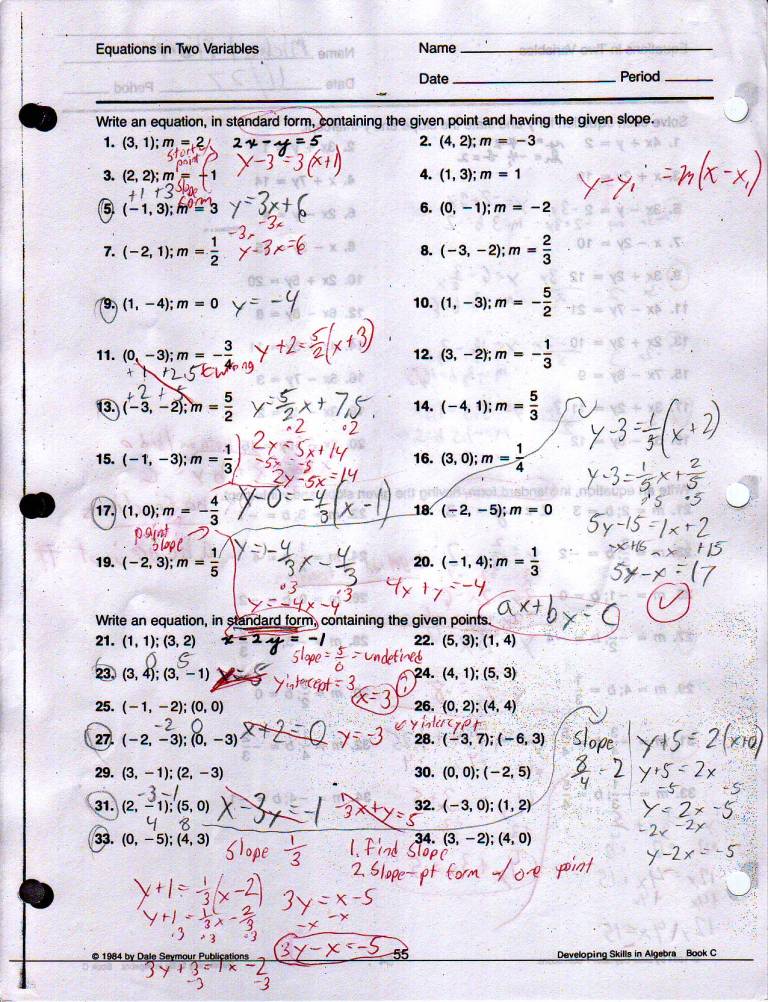 Equations in Two Variables
Name
Date Period
Write an equation, in standard form, containing the given point and having the given slope.
1. (3, 1); m = 2 2x - y = 5
2. (4, 2); m = -3
start point
y-3=3(x+1)
3. (2, 2); m = -1
4. (1, 3); m = 1
y-y₁ = m(x-x₁)
+1 +3 slope form
5. (-1, 3); m = 3 y=3x+6
6. (0, -1); m = -2
-3x -3x
7. (-2, 1); m = 1/2 y-3x=6
8. (-3, -2); m = 2/3
9. (1, -4); m = 0 y=-4
10. (1, -3); m = -5/2
11. (0, -3); m = -3/4 y+2=5/2(x+3)
12. (3, -2); m = -1/3
+1 +2.5 wrong
+2 +5
13. (-3, -2); m = 5/2 y=5/2x+7.5
14. (-4, 1); m = 5/3
y-3=1/5(x+2)
·2 ·2
2y=5x+14
15. (-1, -3); m = 1/3
-5x -5
2y-5x=14
16. (3, 0); m = 1/4
y-3=1/5x+2/5
·5
17. (1, 0); m = -4/3 y-0=-4/3(x-1)
18. (-2, -5); m = 0
5y-15=1x+2
-x+15 -x +15
point slope
19. (-2, 3); m = 1/5 y=-4/3x-4/3
20. (-1, 4); m = 1/3
5y-x=17
·3 ·3
y=-4x-4
4x+y=-4
ax+by=c
Write an equation, in standard form, containing the given points.
21. (1, 1); (3, 2) x-2y=-1
22. (5, 3); (1, 4)
0 5
slope=5/0=undefined
23. (3, 4); (3, -1) y=5
yintercept=3
x=3
24. (4, 1); (5, 3)
25. (-1, -2); (0, 0)
26. (0, 2); (4, 4)
-2 0
yintercypt
27. (-2, -3); (0, -3) x+2=0 y=-3
28. (-3, 7); (-6, 3)
slope
y+5=2(x+0)
29. (3, -1); (2, -3)
30. (0, 0); (-2, 5)
8/4=2
y+5=2x
-5 -5
-3 -1
31. (2, -1); (5, 0) x-3y=-1 -3x+y=5
32. (-3, 0); (1, 2)
y=2x-5
-2x -2x
4 8
33. (0, -5); (4, 3)
34. (3, -2); (4, 0)
y-2x=-5
slope 1/3
1. find slope
2. slope-pt form w/ one point
y+1=1/3(x-2)
3y=x-5
y+1=1/3x-2/3
-x -x
·3 ·3 ·3
3y-x=-5
© 1984 by Dale Seymour Publications
55
Developing Skills in Algebra Book C
3y+3=1x-2
-3 -3